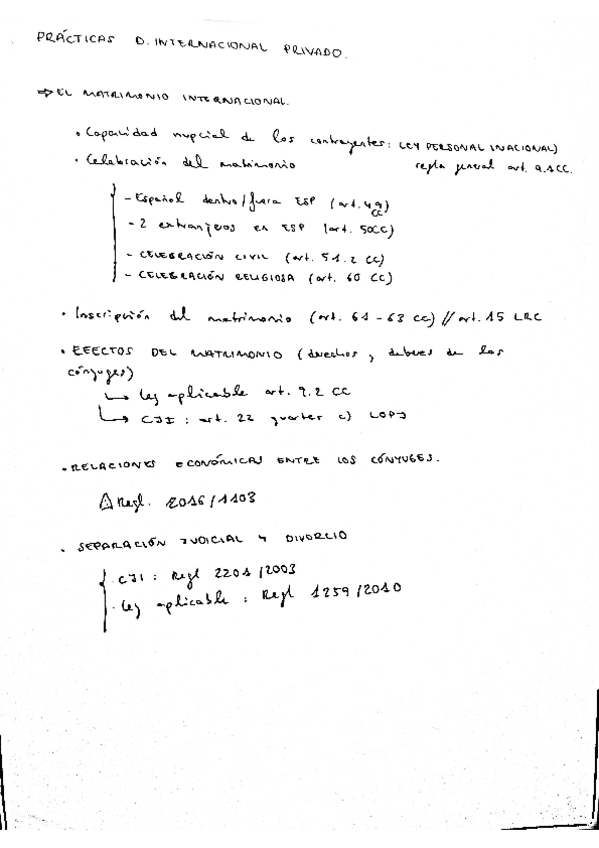 PRÁCTICAS D. INTERNACIONAL PRIVADO.
⇒ EL MATRIMONIO INTERNACIONAL.
• Capacidad nupcial de los contrayentes: LEY PERSONAL (NACIONAL)
regla general art. 9.1 CC.
• Celebración del matrimonio
- Español dentro/fuera ESP (art. 49 CC)
- 2 extranjeros en ESP (art. 50 CC)
- CELEBRACIÓN CIVIL (art. 51.2 CC)
- CELEBRACIÓN RELIGIOSA (art. 60 CC)
• Inscripción del matrimonio (art. 61-63 CC) // art. 15 LRC
• EFECTOS DEL MATRIMONIO (derechos y deberes de los
cónyuges)
↳ Ley aplicable art. 9.2 CC
↳ CJI: art. 22 quarter c) LOPJ
• RELACIONES ECONÓMICAS ENTRE LOS CÓNYUGES.
⚠ Regl. 2016/1103
• SEPARACIÓN JUDICIAL Y DIVORCIO
CJI: Regl 2201/2003
• Ley aplicable: Regl 1259/2010